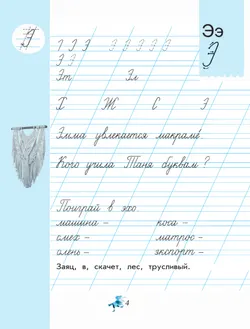 Ээ
Э Э Э Э Э Э Э Э
Э Э
Эт Эл
Х Ж С Э
Эмма увлекается макраме.
Кого учила Таня буквам?
Поиграй в эхо.
машина – коса –
смех – матрос –
олень – экспорт –
Заяц, в, скачет, лес, трусливый.
4